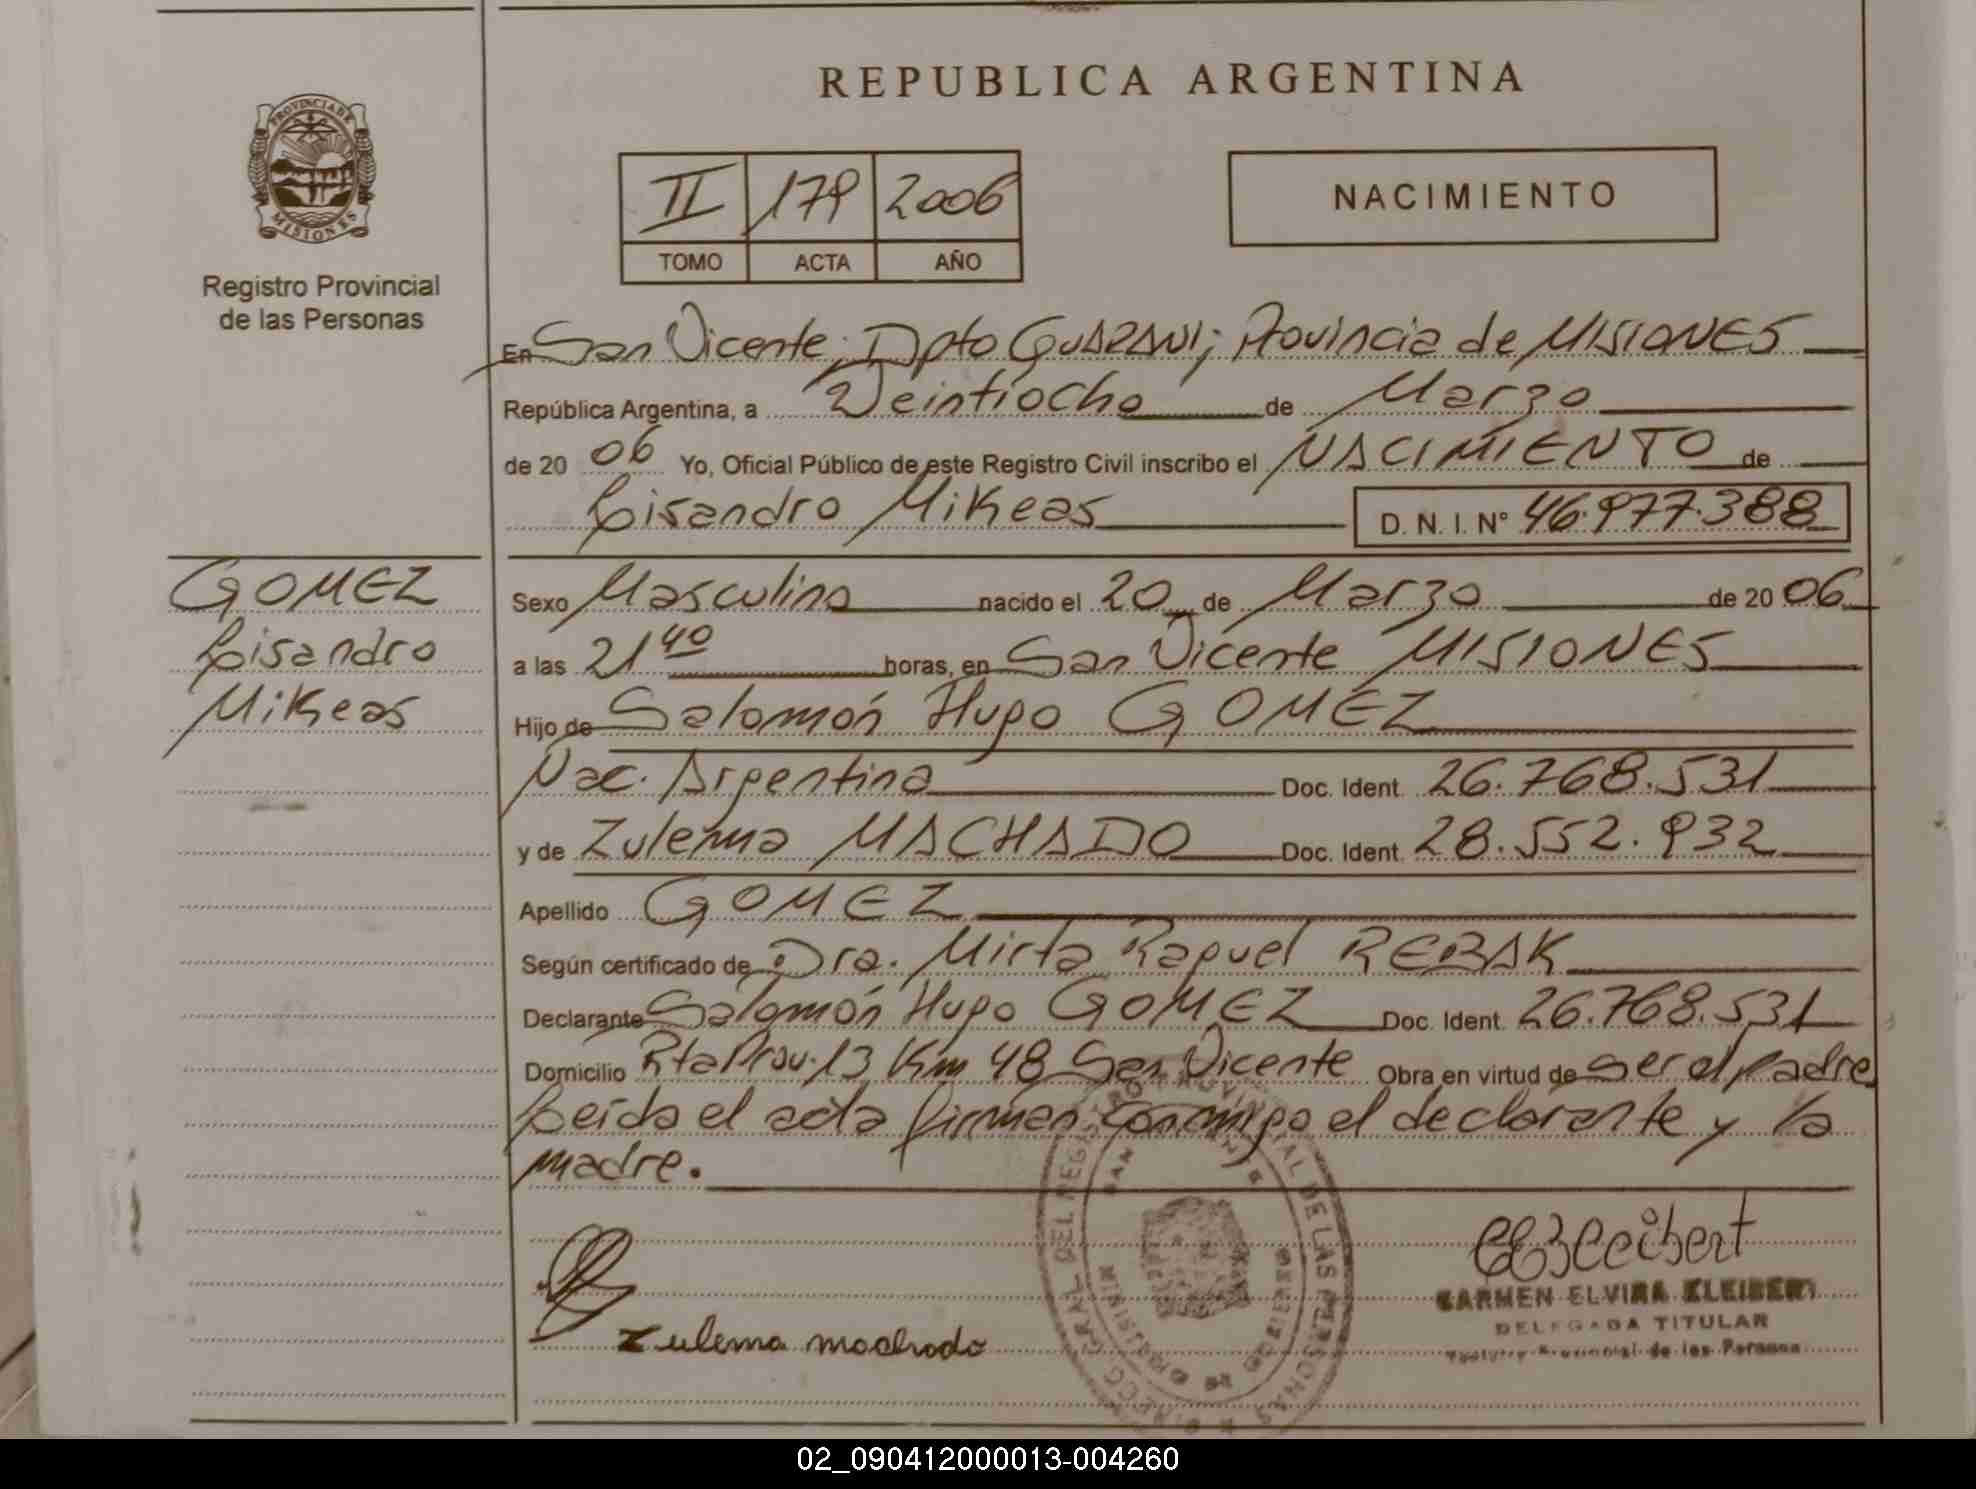 REPUBLICA ARGENTINA
PROVINCIA DE
MISIONES
Registro Provincial
de las Personas
II 179 2006
TOMO ACTA AÑO
NACIMIENTO
En San Vicente; Dpto GUARANI; Provincia de MISIONES
República Argentina, a Veintiocho de Marzo
de 20 06 Yo, Oficial Público de este Registro Civil inscribo el NACIMIENTO de
Lisandro Mikeas D. N. I. N° 46.977.388
GOMEZ
Lisandro
Mikeas
Sexo Masculino nacido el 20 de Marzo de 20 06
a las 21 40 horas, en San Vicente MISIONES
Hijo de Salomón Hugo GOMEZ
Nac. Argentina Doc. Ident. 26.768.531
y de Zulema MACHADO Doc. Ident. 28.552.932
Apellido GOMEZ
Según certificado de Dra. Mirta Raquel REBAK
Declarante Salomón Hugo GOMEZ Doc. Ident. 26.768.531
Domicilio Rta Prov. 13 Km 48 San Vicente Obra en virtud de ser el padre
Leída el acta firman conmigo el declarante y la
madre.
Zulema machado
CARMEN ELVIRA KLEIBERT
DELEGADA TITULAR
de las Personas
02_090412000013-004260